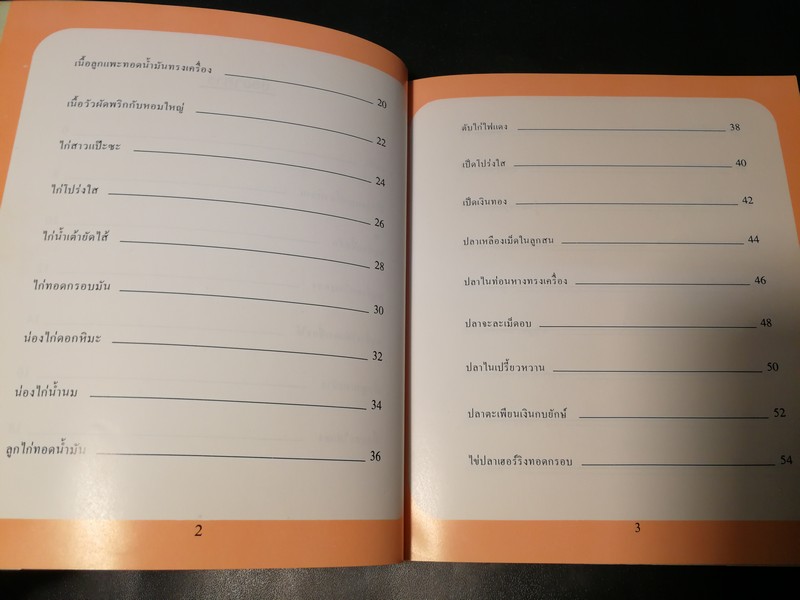 เนื้อลูกแพะทอดน้ำมันทรงเครื่อง 20
เนื้อวัวผัดพริกกับหอมใหญ่ 22
ไก่สาวแป๊ะซะ 24
ไก่โปร่งใส 26
ไก่น้ำเต้ายัดไส้ 28
ไก่ทอดกรอบมัน 30
น่องไก่ดอกหิมะ 32
น่องไก่น้ำนม 34
ลูกไก่ทอดน้ำมัน 36
2
ตับไก่ไฟแดง 38
เป็ดโปร่งใส 40
เป็ดเงินทอง 42
ปลาเหลืองเม็ดในลูกสน 44
ปลาในท่อนหางทรงเครื่อง 46
ปลาจะละเม็ดอบ 48
ปลาไนเปรี้ยวหวาน 50
ปลาตะเพียนเงินกบยักษ์ 52
ไข่ปลาเฮอร์ริงทอดกรอบ 54
3